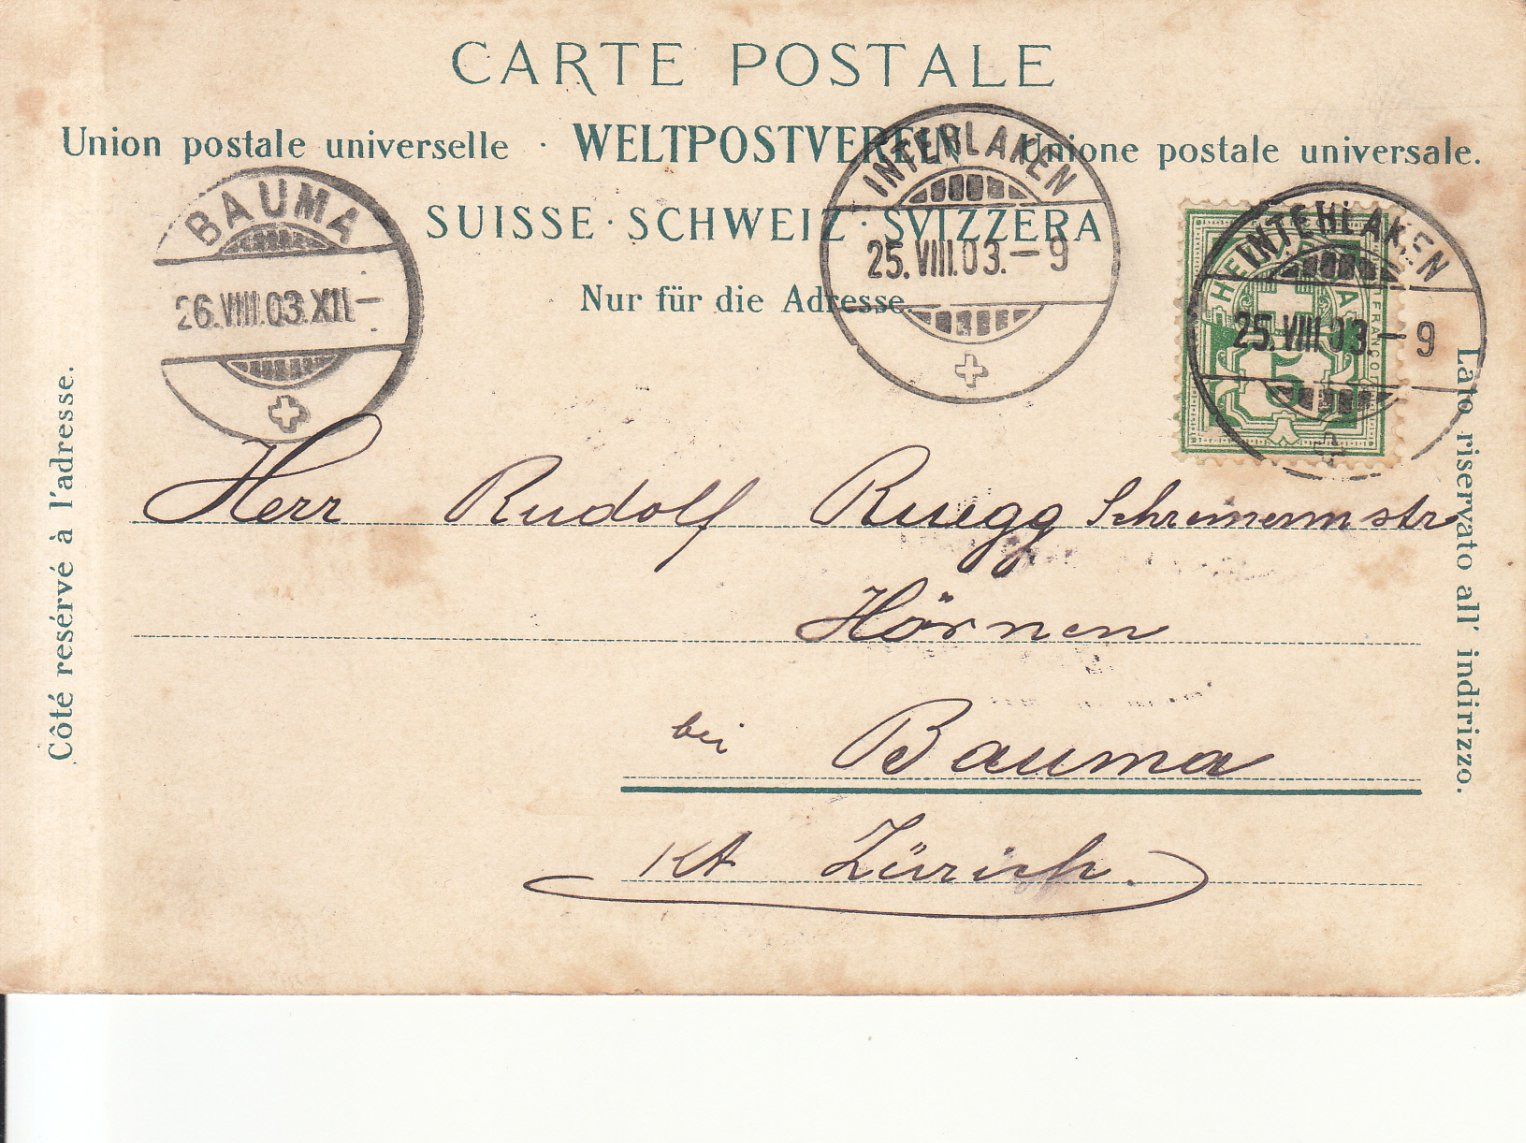 CARTE POSTALE
Union postale universelle · WELTPOSTVEREIN · Unione postale universale.
SUISSE · SCHWEIZ · SVIZZERA
Nur für die Adresse.
BAUMA
26.VIII.03.XII–
INTERLAKEN
25.VIII.03.–9
INTERLAKEN
25.VIII.03.–9
HELVETIA
FRANCO
5
Côté resérvé à l'adresse.
Lato riservato all' indirizzo.
Herr Rudolf Ruegg
Hörnen
bei Bauma
Kt Zürich.